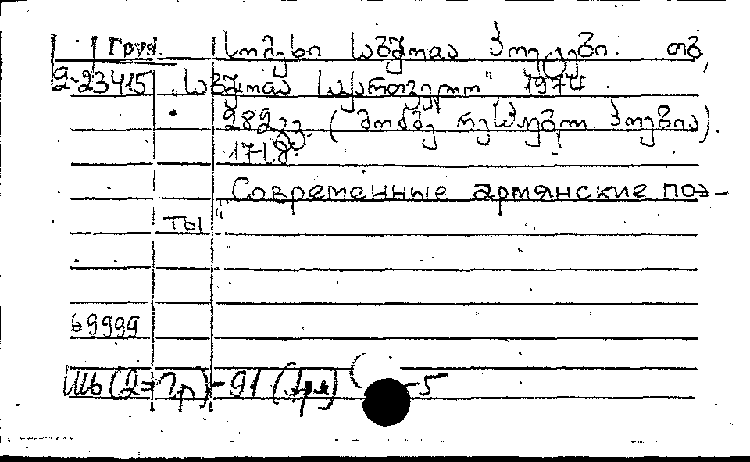 Груз. სომეხი საბჭოთა პოეტები. თბ.,
2-23415 "საბჭოთა საქართველო" 1974
282 გვ. (მოძმე რესპუბლ პოეზია).
"Современные армянские поэ-
ты"
69999
Шб (2=Гр)-91 (Арм) -5